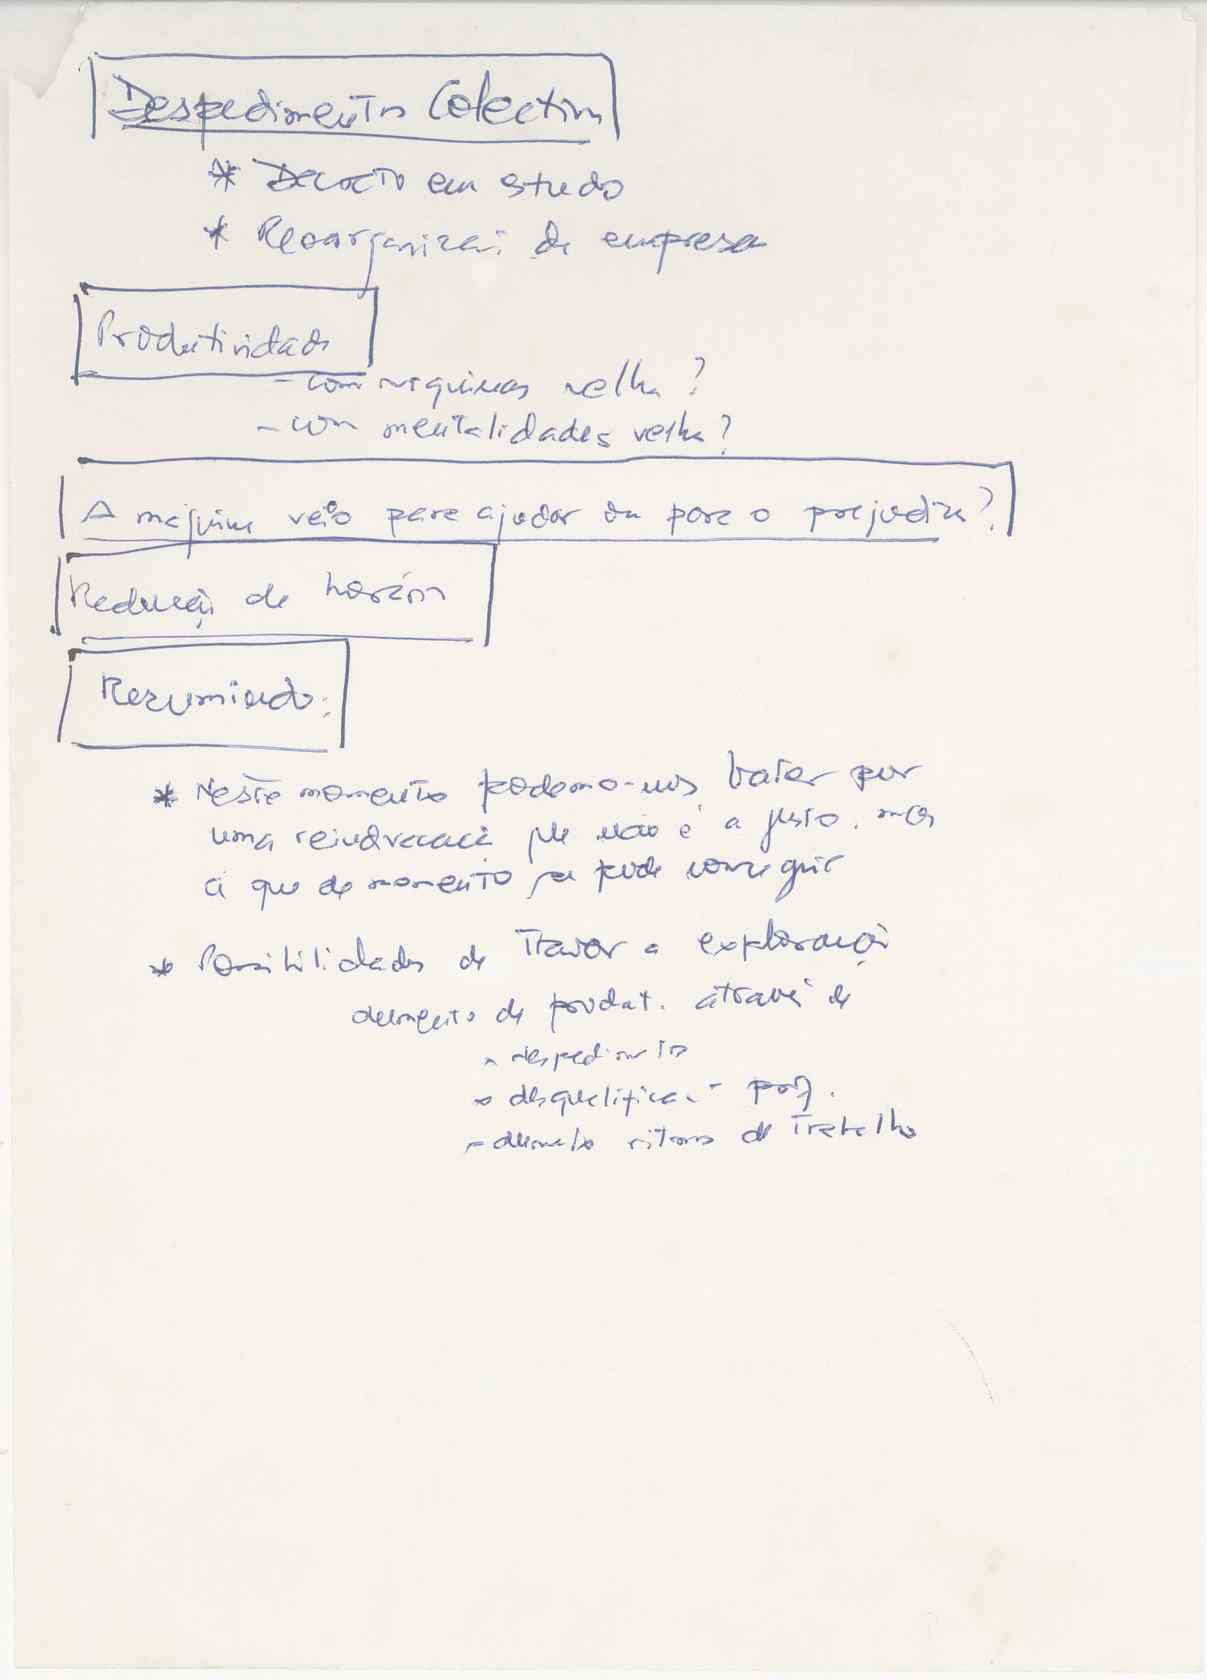 Despedimento Colectivo
* Decreto em estudo
* Reorganizaç. da empresa
Produtividade
- com maquinas velhas?
- com mentalidades velhas?
A maquina veio para ajudar ou para o prejudicar?
Redução de horário
Resumindo:
* Neste momento podemo-nos bater por
uma reindvecação que não é a justo. mas
a que de momento se pode conseguir
* Possibilidades de Travar a exploração
aumento de produt. através de
- despedimento
- desqualificaç. prof.
- aumento ritmo de Trabalho